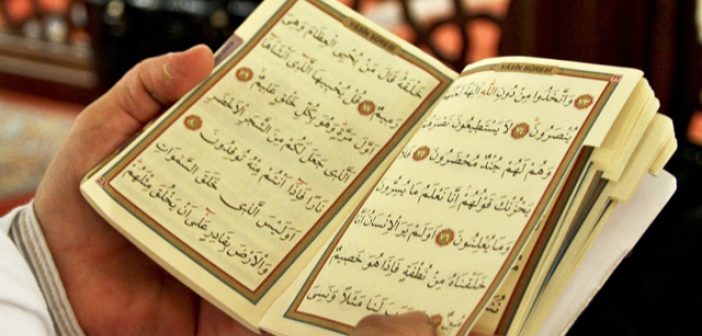 YÂSÎN SÛRESİ
﴿٧٣﴾ وَاتَّخَذُوا مِنْ دُونِ اللّٰهِ اٰلِهَةً
يُنْصَرُونَ ﴿٧٤﴾ لَا يَسْتَطِيعُونَ نَصْرَهُمْ
وَهُمْ لَهُمْ جُنْدٌ مُحْضَرُونَ ﴿٧٥﴾ فَلَا
يَحْزُنْكَ قَوْلُهُمْ اِنَّا نَعْلَمُ مَا يُسِرُّونَ
وَمَا يُعْلِنُونَ ﴿٧٦﴾ اَوَلَمْ يَرَ الْاِنْسَانُ اَنَّا
خَلَقْنَاهُ مِنْ نُطْفَةٍ فَاِذَا هُوَ خَصِيمٌ
مُبِينٌ لَنَا مَثَلًا وَنَسِيَ
YÂSÎN SÛRESİ
خَلْقَهُ قَالَ مَنْ يُحْيِي الْعِظَامَ وَهِيَ
رَمِيمٌ ﴿٧٨﴾ قُلْ يُحْيِيهَا الَّذِٓي اَنْشَاَهَٓا
اَوَّلَ مَرَّةٍ وَهُوَ بِكُلِّ خَلْقٍ عَلِيمٌ ﴿٧٩﴾
اَلَّذِي جَعَلَ لَكُمْ مِنَ الشَّجَرِ الْاَخْضَرِ
نَارًا فَاِذَٓا اَنْتُمْ مِنْهُ تُوقِدُونَ ﴿٨٠﴾
اَوَلَيْسَ الَّذِي خَلَقَ السَّمٰوَاتِ
وَالْاَرْضَ بِقَادِرٍ عَلٰٓى اَنْ يَخْلُقَ مِثْلَهُمْ